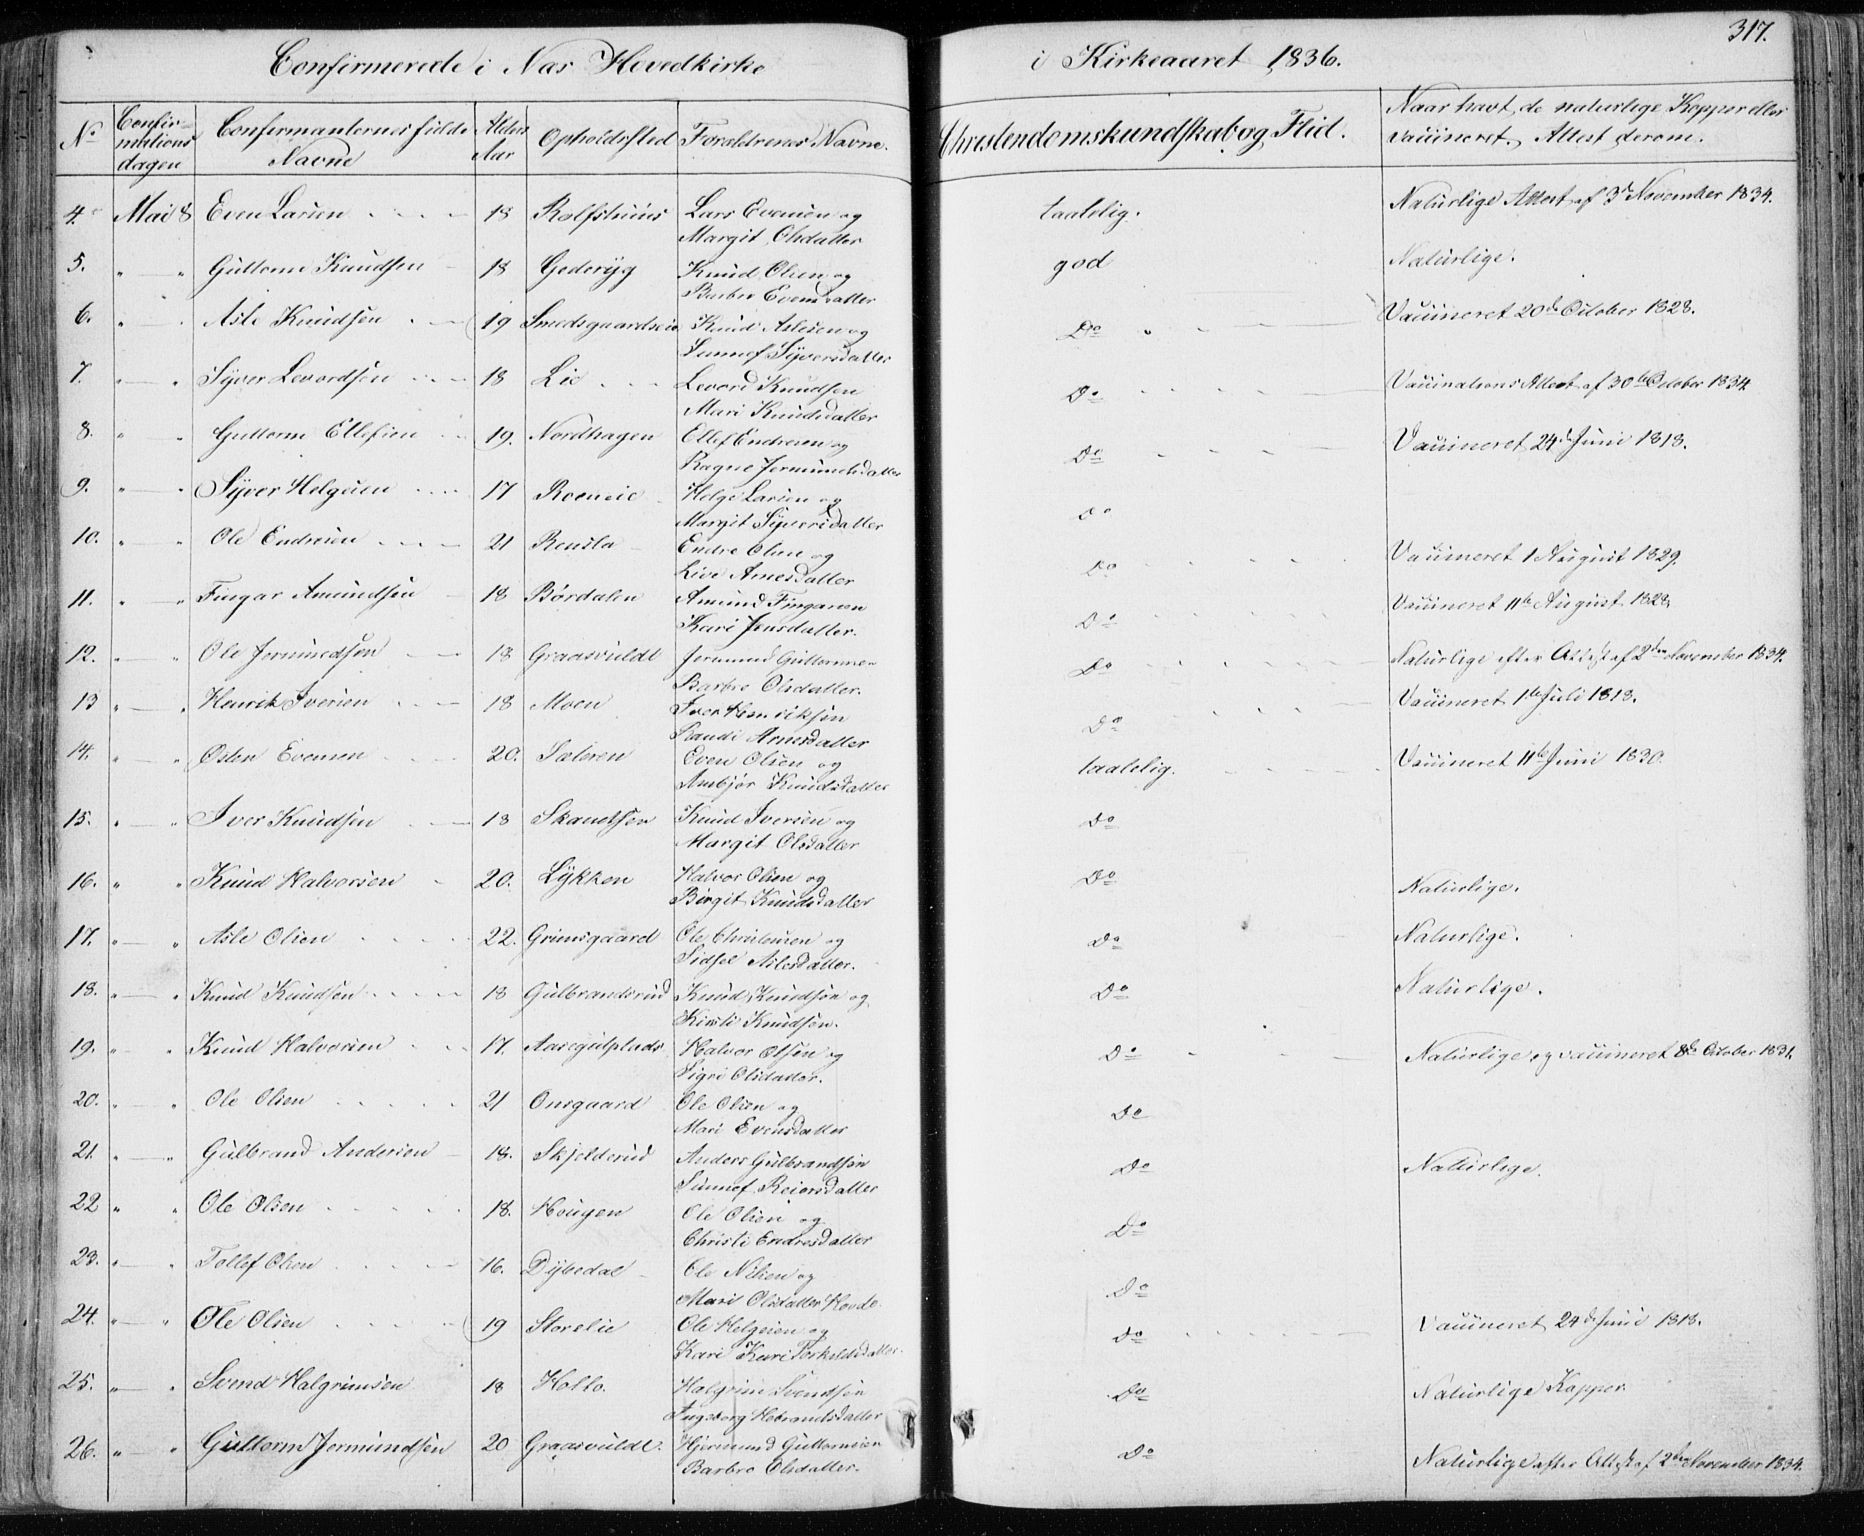 317.
Confirmerede i Næs Hovedkirke i Kirkeaaret 1836.
No Confirmationsdagen Confirmanternes fulde Navne Alder Aar Opholdssted Forældrenes Navne. Christendomskundskab og Flid. Naar havt de naturlige Kopper eller vaccineret. Attest derom.
4. Mai 8 Even Larsen 18 Rolfshuus Lars Evensen og taalelig. Naturlige Attest af 3d November 1834.
Margit Olsdatter
5. " — " Guttorm Knudsen 18 Goderyg Knud Olsen og god Naturlige.
Barbro Evensdatter
6. " Asle Knudsen 19 Smedsgaardseie Knud Aslesen og Do Vaccineret 20de October 1828.
Sunnef Syversdatter
7. " — " Syver Levordsen 18 Lie Levord Knudsen Do Vaccinations Attest af 30te October 1834.
Mari Knudsdatter
8. " " Guttorm Ellefsen 19. Nordhagen Ellef Endresen og Do Vaccineret 24de Juni 1818.
Ragne Jermundsdatter
9. " — " Syver Helgesen 17 Roeneie Helge Larsen og Do
Margit Syversdatter
10. " " Ole Endresen 21 Rensla Endre Olsen og Do Vaccineret 1 August 1829.
Live Arnesdatter
11. " — " Fingar Amundsen 18 Børdalen Amund Fingarsen Do Vaccineret 11te August 1828.
Kari Jensdatter.
12. " — " Ole Jermundsen 18 Graasvulde Jermund Guttormsen Do Naturlige efter Attest af 2den November 1834.
Barbro Olsdatter.
13 " — " Henrik Iversen 18 Moen Iver Henriksen Do Vaccineret 1te Juli 1818.
Randi Arnesdatter
14. " — " Østen Evensen 20. Sæteren Even Olsen og taalelig. Vaccineret 11te Juni 1830.
Ambjør Knudsdatter
15. " — " Iver Knudsen 18 Skandsen Knud Iversen og Do
Margit Olsdatter
16. " " Knud Halvorsen 20. Lykken Halvor Olsen og Do Naturlige.
Birgit Knudsdatter
17. " — " Asle Olsen 22. Grimsgaard Ole Christensen og Do Naturlige.
Sidsel Aslesdatter.
18. " — " Knud Knudsen 18 Gulbrandsrud Knud Knudsen og Do Naturlige.
Kirsti Knudsen.
19. " — " Knud Halvorsen 17. Halvor Olsen og Do Naturlige og vaccineret 8de October 1831.
Sigri Olsdatter.
20. " — " Ole Olsen 21 Onsgaard Ole Olsen og Do
Mari Evensdatter
21. " — " Gulbrand Andersen 18. Skjelderud Anders Gulbrandsen Do Naturlige.
Sunnef Reiersdatter
22 " " Ole Olsen 18. Hougen Ole Olsen og Do
Christi Endresdatter
23. " — " Tollef Olsen 16. Dybedal Ole Nilsen og Do
Mari Olsdatter Hovde.
24. " — " Ole Olsen 19 Storelie Ole Helgesen og Do Vaccineret 24de Juni 1818.
Kari Kari Torkildsdatter.
25. " — " Svend Halgrimsen 18 Hollo. Halgrim Svendsen Do Naturlige Kopper.
Ingeborg Hebrandsdatter
26. " — " Guttorm Jermundsen 20 Graasvulde. Hjermund Guttormsen Do Naturlige efter Attest af 2den November 1834.
Barbro Olsdatter.